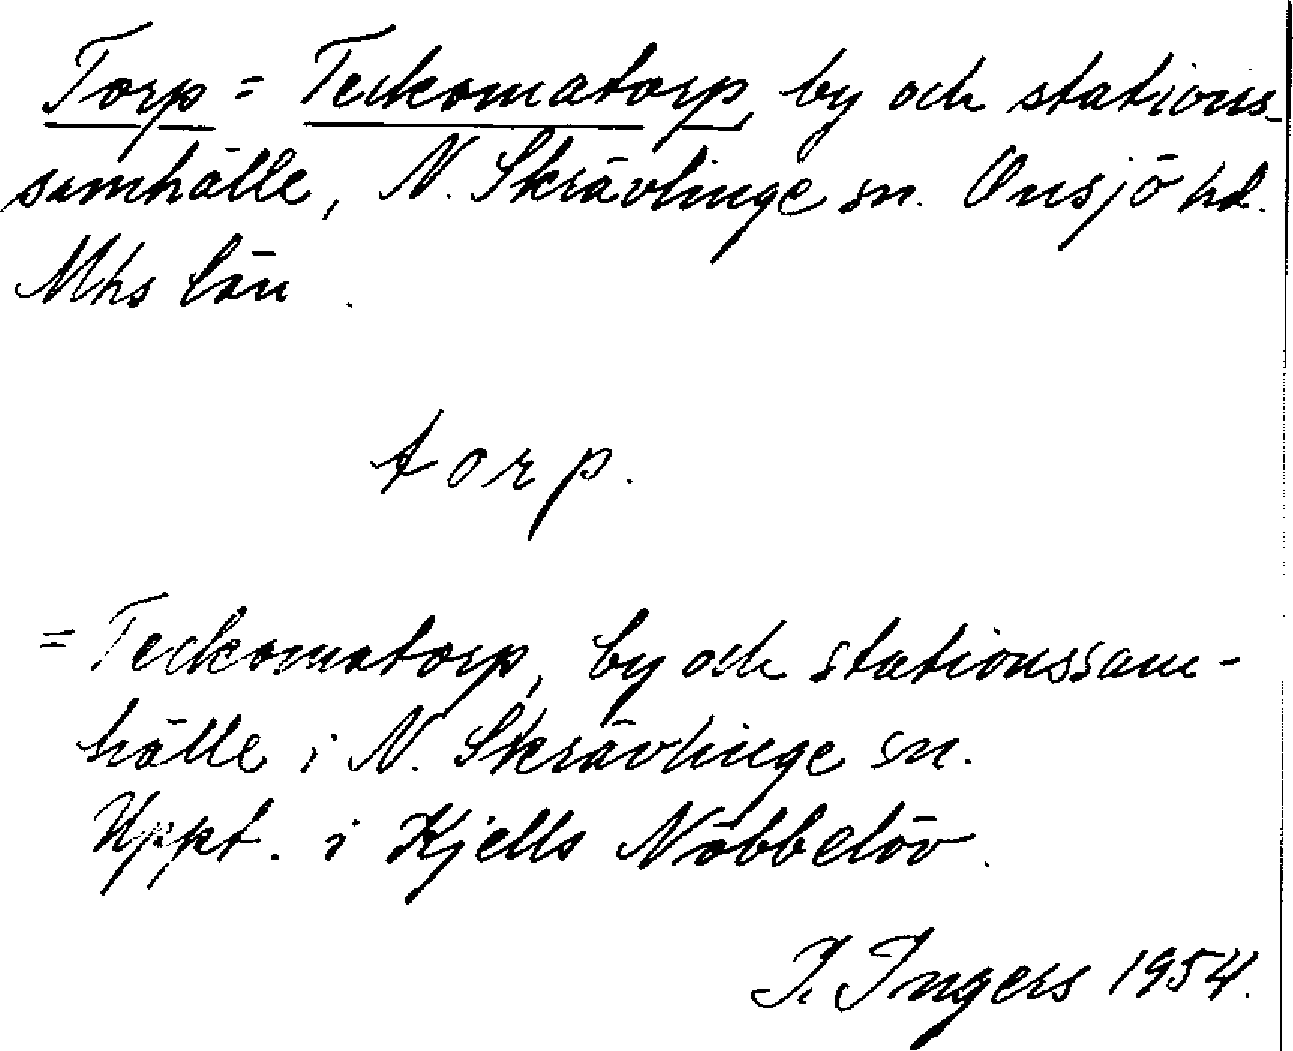 Torp = Teckomatorp, by och stations-
samhälle, N. Skrävlinge sn. Onsjö hd.
Mhs län.
torp.
= Teckomatorp, by och stationssam-
hälle i N. Skrävlinge sn.
Uppt. i Kjells Nöbbelöv.
I. Ingers 1954.